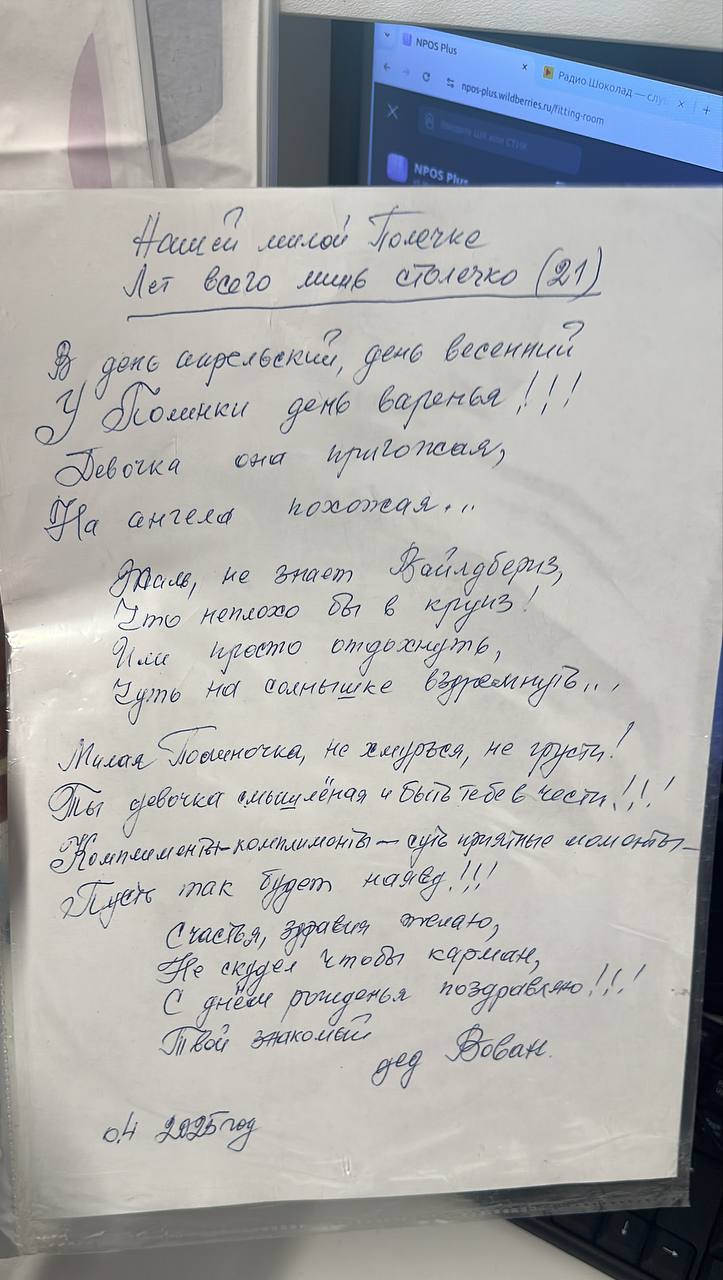 NPOS Plus
Радио Шоколад — слу
npos-plus.wildberries.ru/fitting-room
Введите ШК или СТИК
NPOS Plus
Нашей милой Полечке
Лет всего лишь столечко (21)
В день апрельский, день весенний
У Полинки день варенья!!!
Девочка она пригожая,
На ангела похожая...
Жаль, не знает Вайлдбериз,
Что неплохо бы в круиз!
Или просто отдохнуть,
Чуть на солнышке вздремнуть...
Милая Полиночка, не хмурься, не грусти!
Ты девочка смышлёная и быть тебе в чести!!!
Комплименты-комплименты — суть приятные моменты —
Пусть так будет наяву!!!
Счастья, здравия желаю,
Не скудел чтобы карман,
С днём рожденья поздравляю!!!
Твой знакомый
дед Вован.
04 2025 год